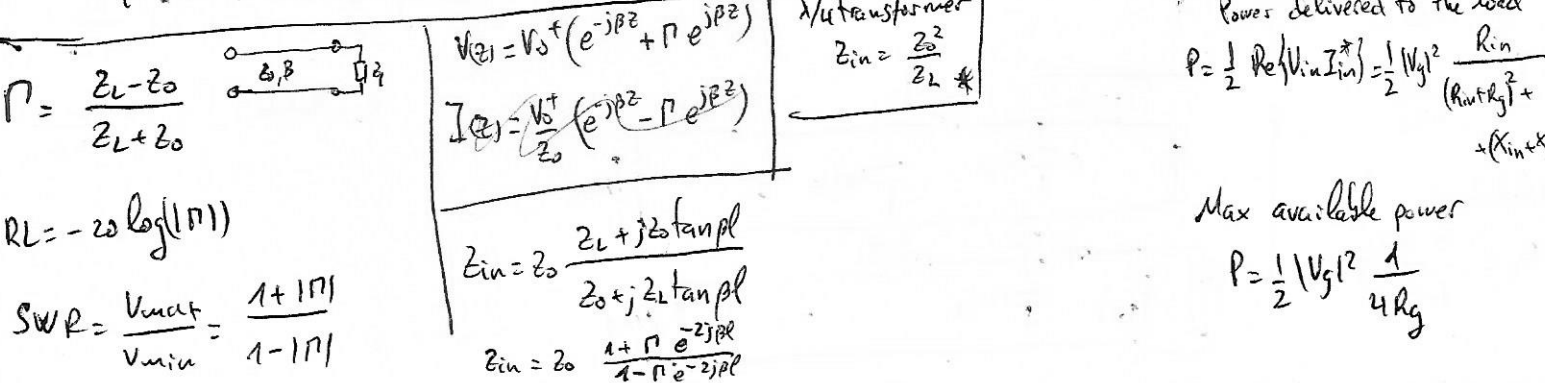 Γ = (Z_L - Z_0) / (Z_L + Z_0)
Z_0, β
Z_L
RL = - 20 log(|Γ|)
SWR = Vmax / Vmin = (1 + |Γ|) / (1 - |Γ|)
V(z) = V_0^+ (e^{-jβz} + Γ e^{jβz})
I(z) = V_0^+ / Z_0 (e^{-jβz} - Γ e^{jβz})
Zin = Z_0 (Z_L + jZ_0 tan βl) / (Z_0 + jZ_L tan βl)
Zin = Z_0 (1 + Γ e^{-2jβl}) / (1 - Γ e^{-2jβl})
λ/4 transformer
Zin = Z_0^2 / Z_L *
Power delivered to the load
P = 1/2 Re{Vin Iin^*} = 1/2 |Vg|^2 Rin / (Rin+Rg)^2 +
+(Xin+X
Max available power
P = 1/2 |Vg|^2 1 / 4Rg